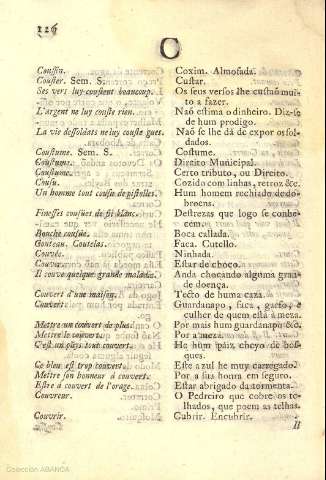 126
C
Coussin. Coxim. Almofada.
Couster. Sem. S. Custar.
Ses vers luy coustent beaucoup. Os seus versos lhe custaõ mui-
to a fazer.
L'argent ne luy couste rien. Naõ estima o dinheiro. Diz-se
de hum prodigo.
La vie des soldats ne luy couste gues. Naõ se lhe dá de expor os sol-
dados.
Coustume. Sem. S. Costume.
Coustume. Direito Municipal.
Coustume. Certo tributo, ou Direito.
Cousu. Cozido com linhas, retroz &c.
Un homme tout cousu de pistolles. Hum homem rechiado de do-
broens.
Finesses cousues de fil blanc. Destrezas que logo se conhe-
cem.
Bouche cousue. Boca callada.
Couteau. Coutelas. Faca. Cutello.
Couvée. Ninhada.
Couver. Estar de choco.
Il couve quelque grande maladie. Anda chocando alguma gran-
de doença.
Couvert d'une maison. Tecto de huma caza.
Couvert. Gurdanapo, faca, garfo, e
culher de quem está á meza.
Mettre un couvert de plus. Por mais hum guardanapo &c.
Mettre le couvert. Por a meza.
C'est un pays tout couvert. He hum paiz cheyo de bos-
ques.
Ce bleu est trop couvert. Este azul he muy carregado.
Mettre son honneur à couvert. Por a sua honra em seguro.
Estre à couvert de l'orage. Estar abrigado da tormenta.
Couvreur. O Pedreiro que cobre os te-
lhados, que poem as telhas.
Couvrir. Cubrir. Encubrir.
Il
Colección ABANCA